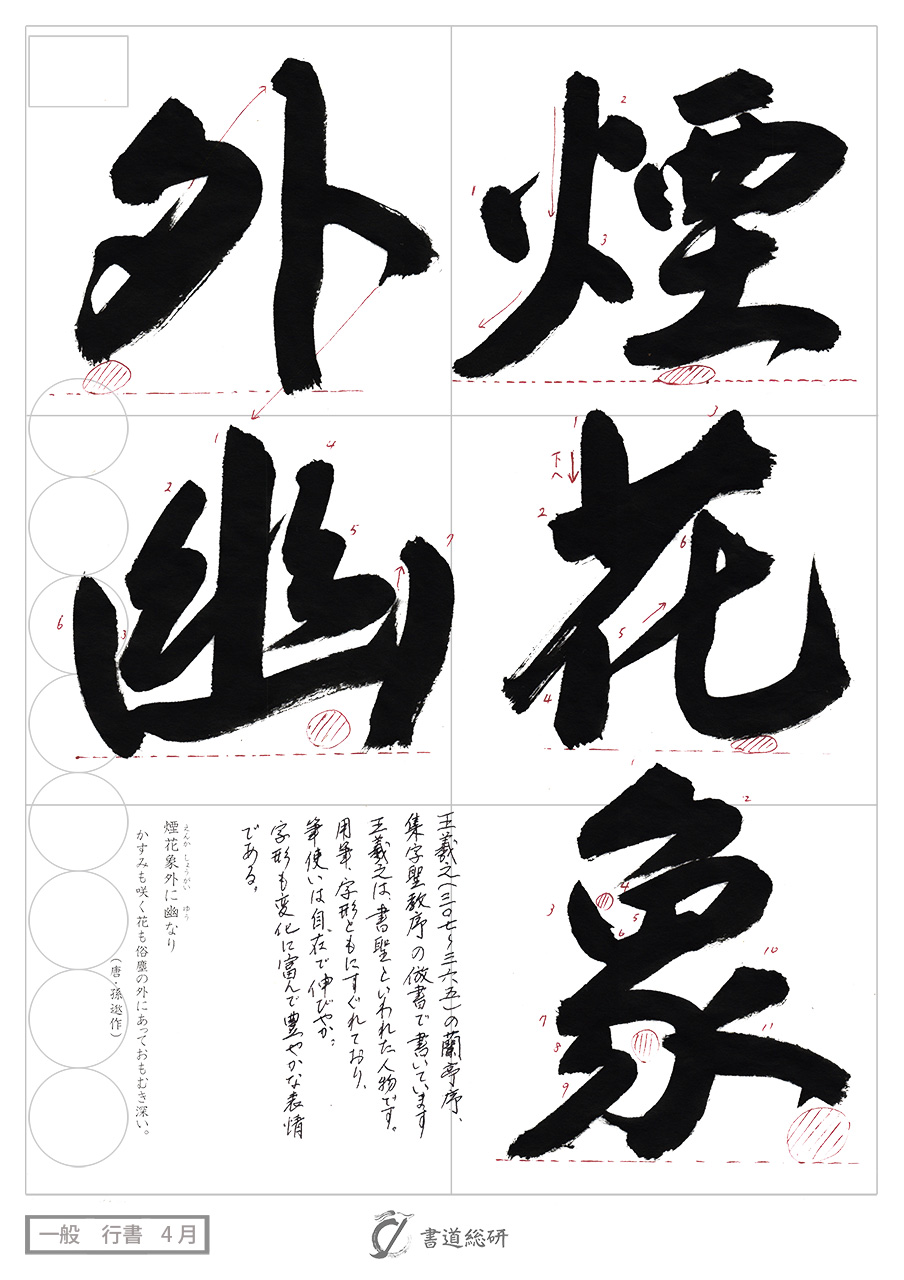 煙花象
外幽
王羲之(三〇七～三六五)の蘭亭序、
集字聖教序の倣書で書いています
王羲之は書聖といわれた人物です。
用筆、字形ともにすぐれており、
筆使いは自在で伸びやか。
字形も変化に富んで豊やかな表情
である。
煙花象外に幽なり
えんか しょうがい ゆう
かすみも咲く花も俗塵の外にあっておもむき深い。
(唐・孫逖作)
1
2
3
下へ
1
2
3
4
5
6
1
2
3
4
5
6
7
8
9
10
11
1
2
3
4
5
6
7
一般 行書 4月
書道総研